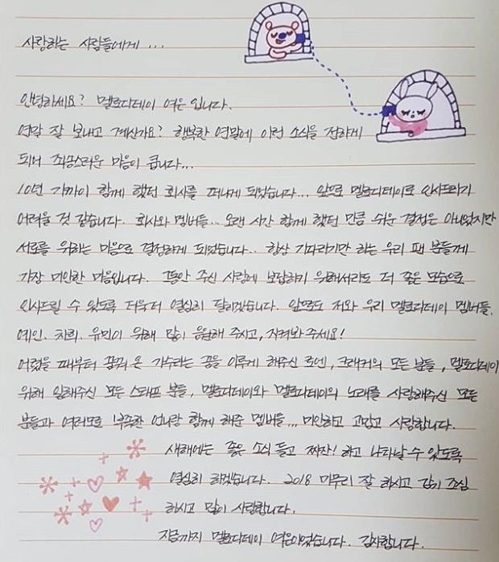 사랑하는 사람들에게...
안녕하세요? 멜로디데이 여은입니다.
연말 잘 보내고 계신가요? 행복한 연말에 이런 소식을 전하게
되어 죄송스러운 마음이 큽니다...
10년 가까이 함께 했던 회사를 떠나게 되었습니다... 앞으로 멜로디데이로 인사드리기
어려울 것 같습니다. 회사와 멤버들.. 오랜 시간 함께 했던 만큼 쉬운 결정은 아니었지만
서로를 위하는 마음으로 결정하게 되었습니다.. 항상 기다리기만 하는 우리 팬 분들께
가장 미안한 마음입니다. 그동안 주신 사랑에 보답하기 위해서라도 더 좋은 모습으로
인사드릴 수 있도록 더욱더 열심히 달리겠습니다. 앞으로도 저와 우리 멜로디데이 멤버들.
예인. 차희. 유민이 위해 많이 응원해 주시고, 지켜봐 주세요!
어렸을 때부터 꿈꿔 온 가수라는 꿈을 이루게 해주신 로엔, 크래커의 모든 분들, 멜로디데이
위해 일해주신 모든 스태프 분들, 멜로디데이와 멜로디데이의 노래를 사랑해주신 모든
분들과 여러모로 부족한 언니랑 함께 해준 멤버들... 미안하고 고맙고 사랑합니다.
새해에는 좋은 소식 들고 짜잔! 하고 나타날 수 있도록
열심히 하겠습니다. 2018 마무리 잘 하시고 감기 조심
하시고 많이 사랑합니다.
지금까지 멜로디데이 여은이었습니다. 감사합니다.